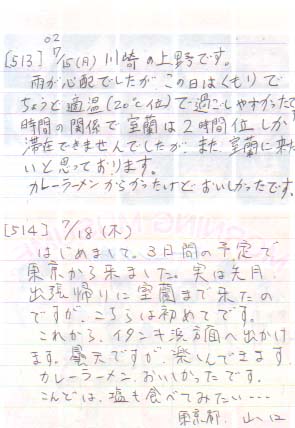 02
[513] 7/15(月) 川崎の上野です。
雨が心配でしたが この日はくもりで
ちょうど適温(20℃位)で過ごしやすかったです
時間の関係で室蘭は2時間位しか
滞在できませんでしたが、また、室蘭に来た
いと思っております。
カレーラーメンからかったけどおいしかったです。
[514] 7/18(木)
はじめまして。3日間の予定で
東京から来ました。実は先月
出張帰りに室蘭まで来たの
ですが、こちらは初めてです。
これから、イタンキ浜方面へ出かけ
ます。曇天ですが楽しんできます。
カレーラーメン、おいしかったです。
こんどは、塩も食べてみたい…
東京都 山口